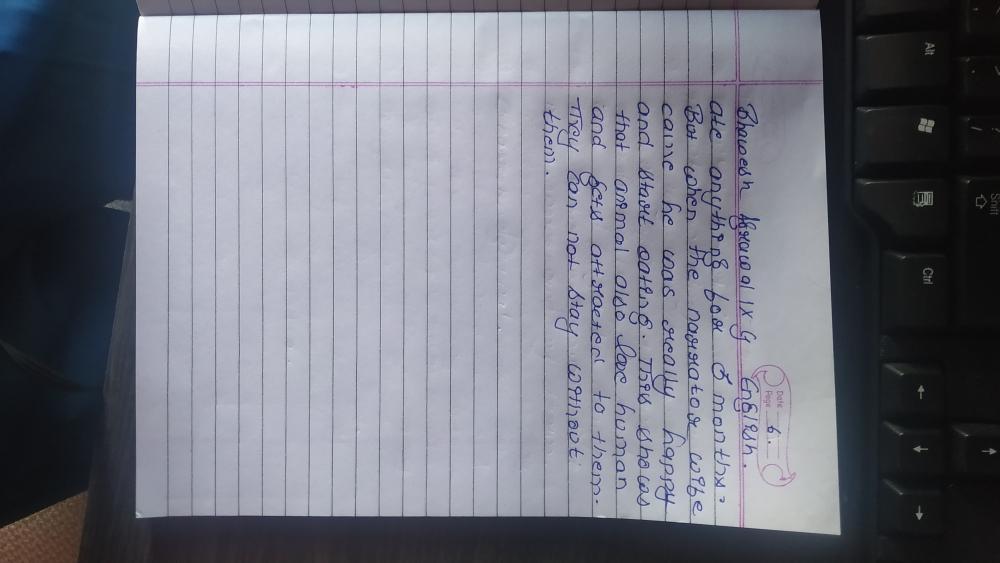 Date
Page 6.
Bhavesh Agrawal IX G English.
ate anything for 3 months.
But when the narrator wibe
came he was really happy
and start eating. This shows
that animal also love human
and gets attracted to them.
They can not stay without
them.
Alt
Ctrl
Shift